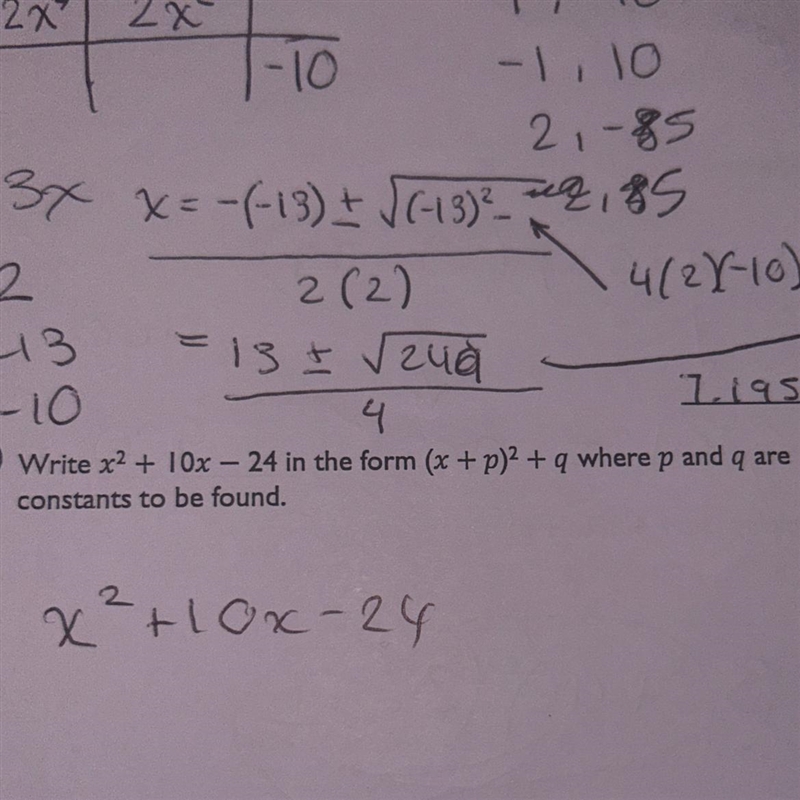 2x² 2x
-10
-1, 10
2, -85
-2, 85
3x x = -(-13) ± √(-13)² -
2(2)
4(2)(-10)
2
-13
-10
= 13 ± √249
4
7.195
Write x² + 10x − 24 in the form (x + p)² + q where p and q are
constants to be found.
x² + 10x - 24